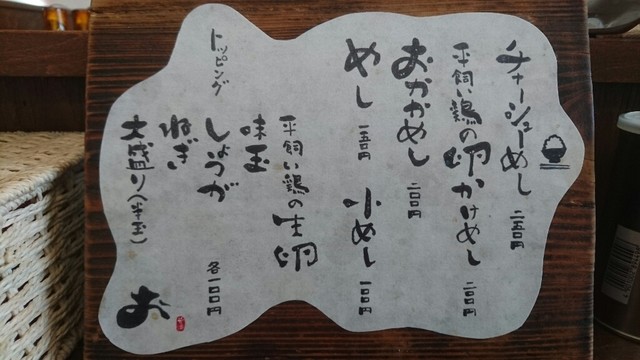 チャーシューめし 二五〇円
平飼い鶏の卵かけめし 二〇〇円
おかかめし 二〇〇円
めし 一五〇円
小めし 一〇〇円
トッピング
平飼い鶏の生卵
味玉
しょうが
ねぎ
大盛り(半玉)
各一〇〇円
お